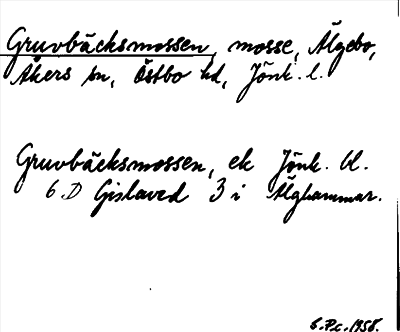 Gruvbäcksmossen, mosse, Älgebo,
Åkers sn, Östbo hd, Jönk. l.
Gruvbäcksmossen, ek Jönk. bl.
6.D Gislaved 3 i Älghammar.
1958.